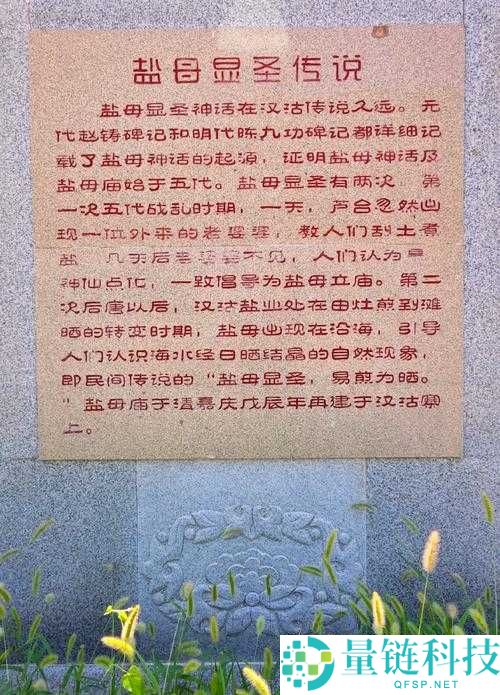 盐母显圣传说
盐母显圣神话在汉沽传说久远。元
代赵铸碑记和明代陈九功碑记都详细记
载了盐母神话的起源，证明盐母神话及
盐母庙始于五代。盐母显圣有两次，第
一次五代战乱时期，一天，芦台忽然出
现一位外来的老婆婆，教人们刮土煮
盐，几天后老婆婆不见，人们认为是
神仙点化，一致倡导为盐母立庙。第二
次后唐以后，汉沽盐业处在由灶煎到滩
晒的转变时期，盐母出现在沿海，引导
人们认识海水经日晒结晶的自然现象，
即民间传说的“盐母显圣，易煎为晒。
”盐母庙于清嘉庆戊辰年再建于汉沽寨
上。
量链科技
QFSP.NET